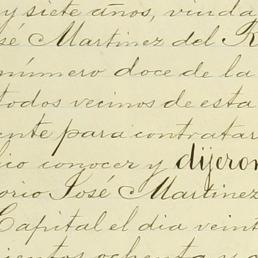 y siete años, viuda
se Martinez del R
número doce de la
todos vecinos de esta
ente para contratar
cio conocer y dijeron
onio José Martinez
Capital el dia veint
cientos ochenta y